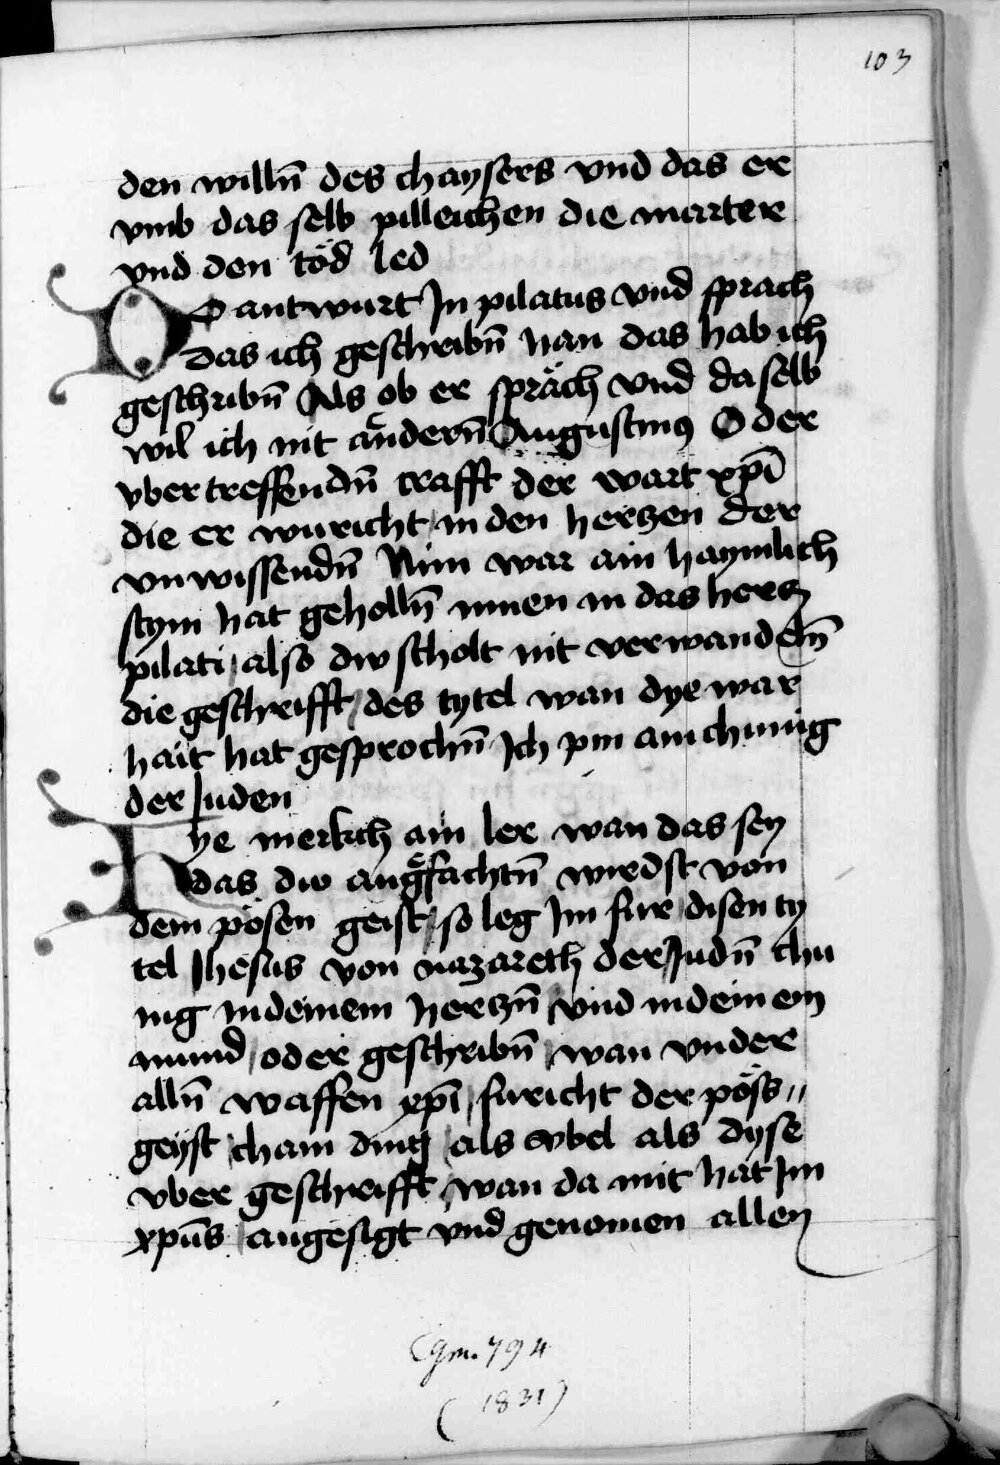 103
den willn̄ des chaysers vnd das er
vmb das selb pilleichen die marter
vnd den töd led
DO antwurt In pilatus vnd sprach
das ich geschribn̄ han das hab ich
geschribn̄ Als ob er spräch vnd daselb
wil ich nit ändern̄ Augustinꝰ Oder
vbertreffendn̄ crafft der wart xp̄i
die er wuricht in den hertzen der
vnwissendn̄ Nim war ain haymlich
stym hat geholln̄ innen in das hertz
pilati also dw scholt nit verwandeln̄
die geschrifft des tytel wan dye war
hait hat gesprochn̄ Ich pin ain chunig
der Juden
Hye merkch ain ler wan das sey
das dw angefachtn̄ wirdst von
dem pösen geist so leg Im für disen ty
tel Jhesus von nazareth der Judn̄ chu
nig in deinem hertzn̄ vnd in deinem
mund oder geschribn̄ wan vnder
alln̄ waffen xp̄i furicht der pöss
geyst cham ding als vbel als dyse
vber geschrifft wan da mit hat Im
xp̄us angesigt vnd genomen allen
Cgm. 794
(1831)